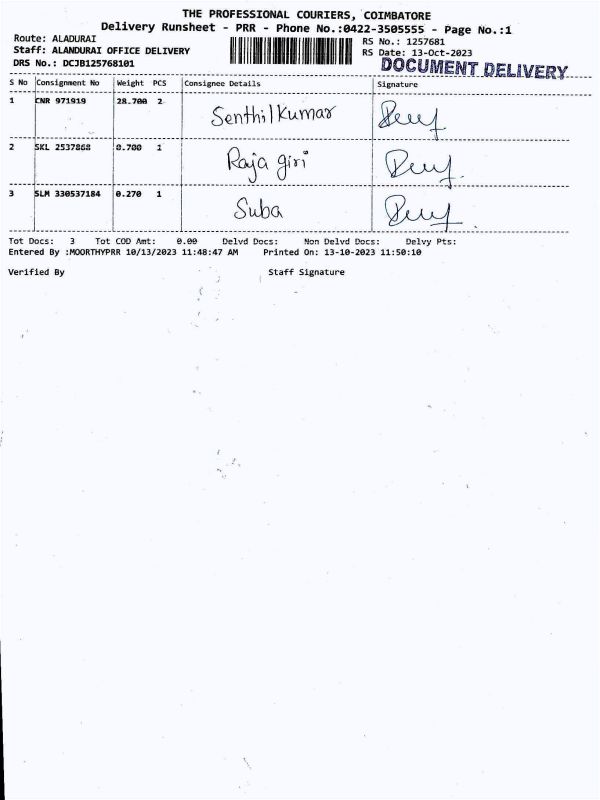 THE PROFESSIONAL COURIERS, COIMBATORE
Delivery Runsheet - PRR - Phone No.:0422-3505555 - Page No.:1
Route: ALADURAI RS No.: 1257681
Staff: ALANDURAI OFFICE DELIVERY RS Date: 13-Oct-2023
DRS No.: DCJB125768101 DOCUMENT DELIVERY
S No Consignment No Weight PCS Consignee Details Signature
1 CNR 971919 28.700 2 Senthilkumar
2 SKL 2537868 0.700 1 Raja giri
3 SLM 330537184 0.270 1 Suba
Tot Docs: 3 Tot COD Amt: 0.00 Delvd Docs: Non Delvd Docs: Delvy Pts:
Entered By :MOORTHYPRR 10/13/2023 11:48:47 AM Printed On: 13-10-2023 11:50:10
Verified By Staff Signature